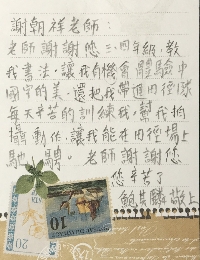 謝朝祥老師：
老師謝謝您三、四年級，教
我書法，讓我有機會體驗中
國字的美，還把我帶進田徑隊
每天辛苦的訓練我，幫我拍
攝動作，讓我能在田徑場上
馳騁。老師謝謝您
您辛苦了
鮑其麟敬上
10
20